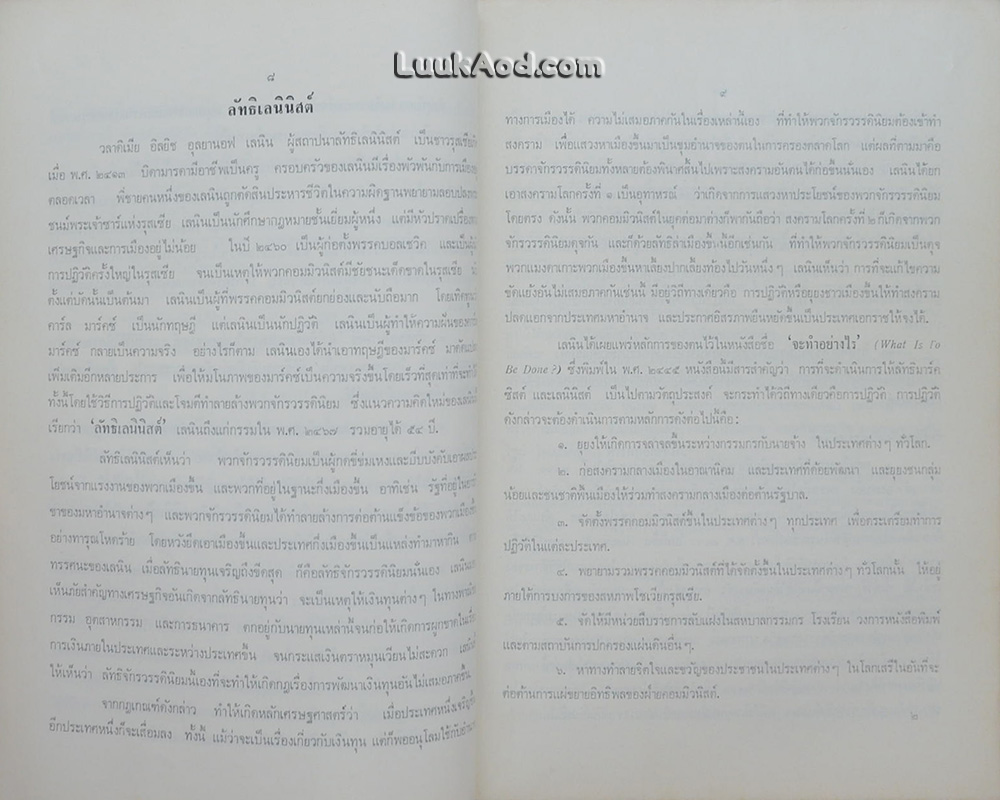 LuukAod.com
๘
ลัทธิเลนินิสต์
วลาดิเมีย อิลยิช อุลยานอฟ เลนิน ผู้สถาปนาลัทธิเลนินิสต์ เป็นชาวรุสเซีย
เมื่อ พ.ศ. ๒๔๑๓ บิดามารดามีอาชีพเป็นครู ครอบครัวของเลนินมีเรื่องพัวพันกับการเมือง
ตลอดเวลา พี่ชายคนหนึ่งของเลนินถูกตัดสินประหารชีวิตในความผิดฐานพยายามลอบปลง
ชนม์พระเจ้าซาร์แห่งรุสเซีย เลนินเป็นนักศึกษากฎหมายชั้นเยี่ยมผู้หนึ่ง แต่มีหัวปราดเปรื่อง
เศรษฐกิจและการเมืองอยู่ไม่น้อย ในปี ๒๔๖๐ เป็นผู้ก่อตั้งพรรคบอลเชวิค และเป็น
การปฏิวัติครั้งใหญ่ในรุสเซีย จนเป็นเหตุให้พวกคอมมิวนิสต์มีชัยชนะเด็ดขาดในรุสเซีย
ตั้งแต่บัดนั้นเป็นต้นมา เลนินเป็นผู้ที่พรรคคอมมิวนิสต์ยกย่องและนับถือมาก โดยเทิด
คาร์ล มาร์คซ์ เป็นนักทฤษฎี แต่เลนินเป็นนักปฏิวัติ เลนินเป็นผู้ทำให้ความฝันของ
มาร์คซ์ กลายเป็นความจริง อย่างไรก็ตาม เลนินเองได้นำเอาทฤษฎีของมาร์คซ์ มาดัดแปลง
เพิ่มเติมอีกหลายประการ เพื่อให้มโนภาพของมาร์คซ์เป็นความจริงขึ้นโดยเร็วที่สุดเท่าที่จะ
ทั้งนี้โดยใช้วิธีการปฏิวัติและโจมตีทำลายล้างพวกจักรวรรดินิยม ซึ่งแนวความคิดใหม่ของ
เรียกว่า 'ลัทธิเลนินิสต์' เลนินถึงแก่กรรมใน พ.ศ. ๒๔๖๗ รวมอายุได้ ๕๔ ปี.
ลัทธิเลนินิสต์เห็นว่า พวกจักรวรรดินิยมเป็นผู้กดขี่ข่มเหงและบีบบังคับเอา
โยชน์จากแรงงานของพวกเมืองขึ้น และพวกที่อยู่ในฐานะกึ่งเมืองขึ้น อาทิเช่น รัฐที่อยู่ใน
ขาของมหาอำนาจต่างๆ และพวกจักรวรรดินิยมได้ทำลายล้างการต่อต้านแข็งข้อของพวกเมือง
อย่างทารุณโหดร้าย โดยหวังยึดเอาเมืองขึ้นและประเทศกึ่งเมืองขึ้นเป็นแหล่งทำมาหากิน
ทรรศนะของเลนิน เมื่อลัทธินายทุนเจริญถึงขีดสุด ก็คือลัทธิจักรวรรดินิยมนั่นเอง
เห็นภัยสำคัญทางเศรษฐกิจอันเกิดจากลัทธินายทุนว่า จะเป็นเหตุให้เงินทุนต่างๆ ในทาง
กรรม อุตสาหกรรม และการธนาคาร ตกอยู่กับนายทุนเหล่านั้นจนก่อให้เกิดการผูกขาดใน
การเงินภายในประเทศและระหว่างประเทศขึ้น จนกระแสเงินตราหมุนเวียนไม่สะดวก
ให้เห็นว่า ลัทธิจักรวรรดินิยมนี้เองที่จะทำให้เกิดกฎเรื่องการพัฒนาเงินทุนอันไม่เสมอภาคขึ้น.
จากกฎเกณฑ์ดังกล่าว ทำให้เกิดหลักเศรษฐศาสตร์ว่า เมื่อประเทศหนึ่งเจริญ
อีกประเทศหนึ่งก็จะเสื่อมลง ทั้งนี้ แม้ว่าจะเป็นเรื่องเกี่ยวกับเงินทุน แต่ก็พออนุโลมใช้กับ
๙
ทางการเมืองได้ ความไม่เสมอภาคกันในเรื่องเหล่านี้เอง ที่ทำให้พวกจักรวรรดินิยมต้องเข้าทำ
สงคราม เพื่อแสวงหาเมืองขึ้นมาเป็นขุมอำนาจของตนในการครองตลาดโลก แต่ผลที่ตามมาคือ
บรรดาจักรวรรดินิยมทั้งหลายต้องพินาศสิ้นไปเพราะสงครามอันตนได้ก่อขึ้นนั่นเอง เลนินได้ยก
เอาสงครามโลกครั้งที่ ๑ เป็นอุทาหรณ์ ว่าเกิดจากการแสวงหาประโยชน์ของพวกจักรวรรดินิยม
โดยตรง ดังนั้น พวกคอมมิวนิสต์ในยุคต่อมาต่างก็พากันถือว่า สงครามโลกครั้งที่ ๒ ก็เกิดจากพวก
จักรวรรดินิยมดุจกัน และก็ด้วยลัทธิล่าเมืองขึ้นนี้อีกเช่นกัน ที่ทำให้พวกจักรวรรดินิยมเป็นดุจ
พวกแมงดาเกาะพวกเมืองขึ้นหาเลี้ยงปากเลี้ยงท้องไปวันหนึ่งๆ เลนินเห็นว่า การที่จะแก้ไขความ
ขัดแย้งอันไม่เสมอภาคกันเช่นนี้ มีอยู่วิถีทางเดียวคือ การปฏิวัติหรือยุยงชาวเมืองขึ้นให้ทำสงคราม
ปลดแอกจากประเทศมหาอำนาจ และประกาศอิสรภาพยืนหยัดขึ้นเป็นประเทศเอกราชให้จงได้.
เลนินได้เผยแพร่หลักการของตนไว้ในหนังสือชื่อ 'จะทำอย่างไร' (What Is To
Be Done?) ซึ่งพิมพ์ใน พ.ศ. ๒๔๔๕ หนังสือนี้มีสารสำคัญว่า การที่จะดำเนินการให้ลัทธิมาร์ค
ซิสต์ และเลนินิสต์ เป็นไปตามวัตถุประสงค์ จะกระทำได้วิถีทางเดียวคือการปฏิวัติ การปฏิวัติ
ดังกล่าวจะต้องดำเนินการตามหลักการดังต่อไปนี้คือ:
๑. ยุยงให้เกิดการจลาจลขึ้นระหว่างกรรมกรกับนายจ้าง ในประเทศต่างๆ ทั่วโลก.
๒. ก่อสงครามกลางเมืองในอาณานิคม และประเทศที่ด้อยพัฒนา และยุยงชนกลุ่ม
น้อยและชนชาติพื้นเมืองให้ร่วมทำสงครามกลางเมืองต่อต้านรัฐบาล.
๓. จัดตั้งพรรคคอมมิวนิสต์ขึ้นในประเทศต่างๆ ทุกประเทศ เพื่อตระเตรียมทำการ
ปฏิวัติในแต่ละประเทศ.
๔. พยายามรวมพรรคคอมมิวนิสต์ที่ได้จัดตั้งขึ้นในประเทศต่างๆ ทั่วโลกนั้น ให้อยู่
ภายใต้การบงการของสหภาพโซเวียตรุสเซีย.
๕. จัดให้มีหน่วยสืบราชการลับแฝงในสหบาลกรรมกร โรงเรียน วงการหนังสือพิมพ์
และตามสถาบันการปกครองแผ่นดินอื่นๆ.
๖. หาทางทำลายจิตใจและขวัญของประชาชนในประเทศต่างๆ ในโลกเสรีในอันที่จะ
ต่อต้านการแผ่ขยายอิทธิพลของฝ่ายคอมมิวนิสต์.
๒